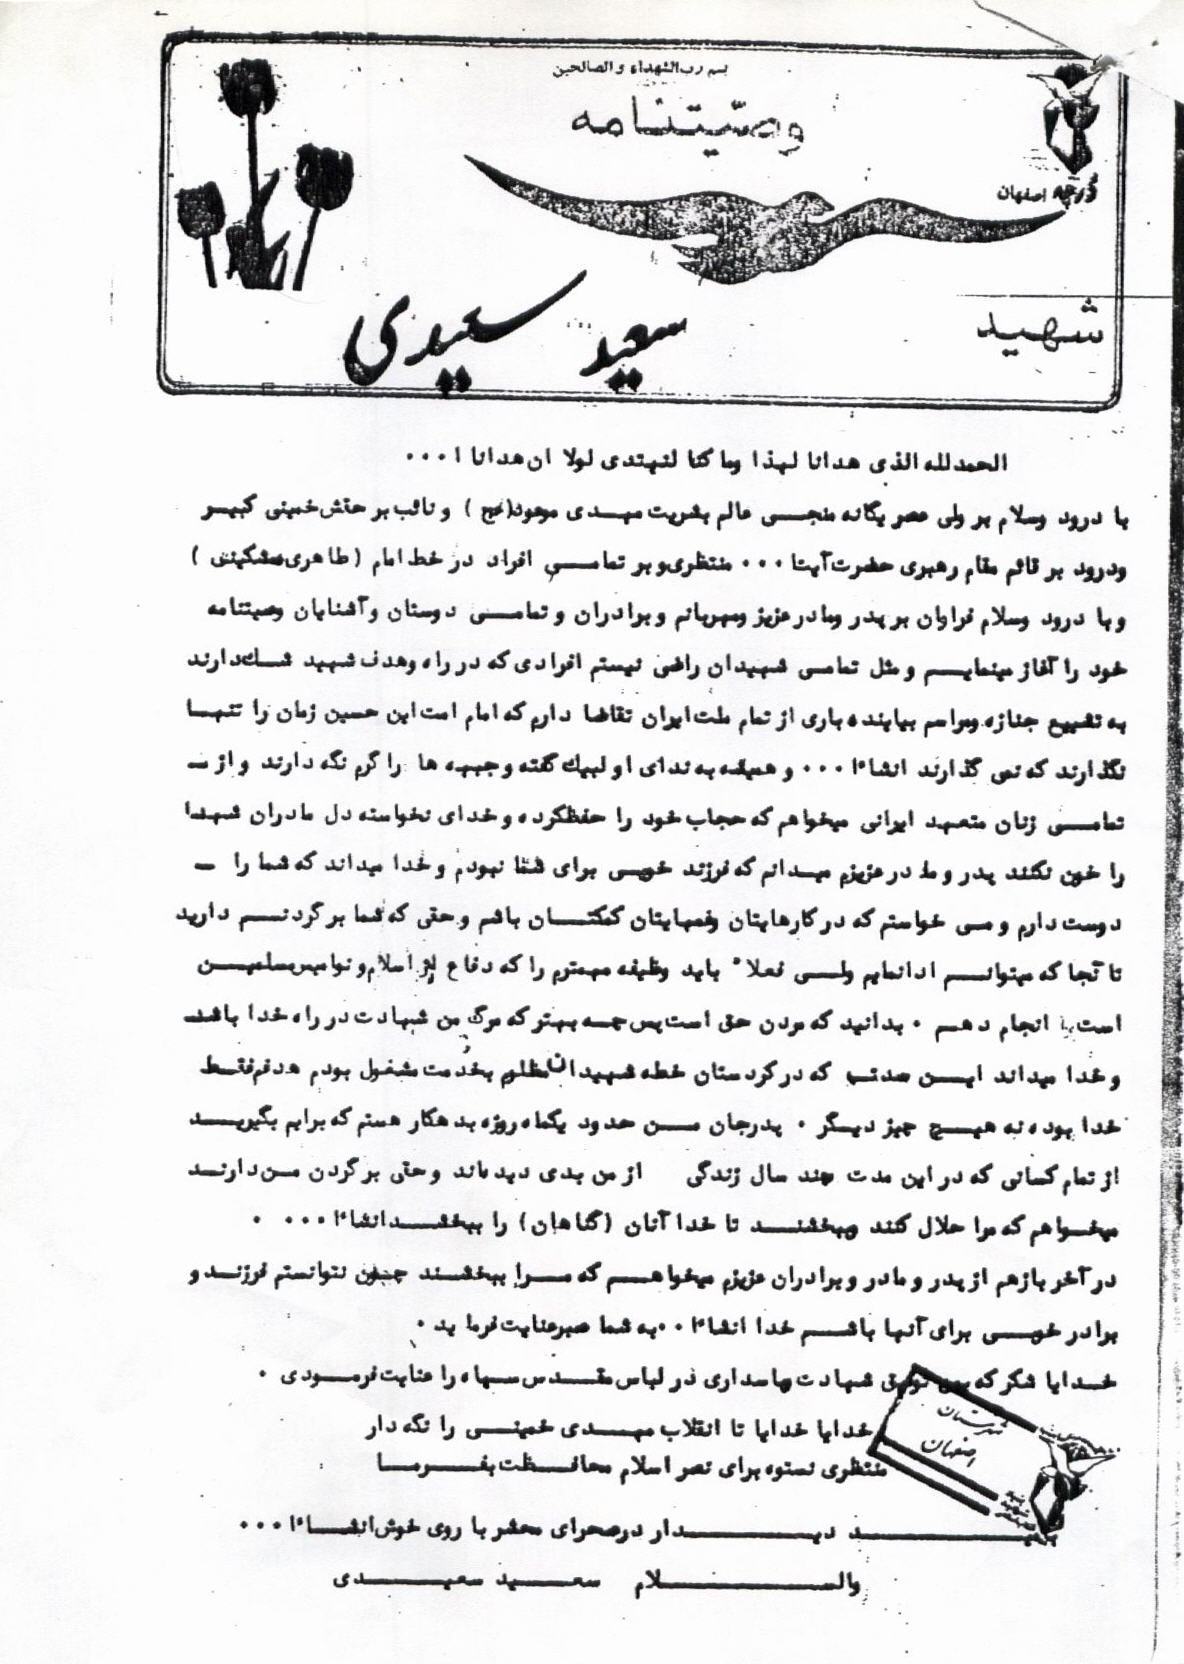 بسم رب الشهداء والصالحین
وصیّتنامه
درچه اصفهان
شهید
سعید سعیدی
الحمدلله الذی هدانا لهذا وما کنا لنهتدی لولا ان هدانا ا...
با درود وسلام بر ولی عصر یگانه منجی عالم بشریت مهدی موعود(عج) و نائب بر حقش خمینی کبیر
ودرود بر قائم مقام رهبری حضرت آیتا ... منتظری وبر تمامی افراد در خط امام (طاهری مشکینی)
و با درود وسلام فراوان بر پدر ومادر عزیز ومهربانم و برادران و تمامی دوستان و آشنایان وصیتنامه
خود را آغاز مینمایم و مثل تمامی شهیدان راضی نیستم افرادی که در راه وهدف شهید شك دارند
به تشییع جنازه ومراسم بیایند باری از تمام ملت ایران تقاضا دارم که امام امت این حسین زمان را تنها
نگذارند که نمی گذارند انشاءا ... و همیشه به ندای او لبیك گفته و جبهه ها را گرم نگه دارند و از ـ
تمامی زنان متعهد ایرانی میخواهم که حجاب خود را حفظ کرده و خدای نخواسته دل مادران شهدا
را خون نکنند پدر و مادر عزیزم میدانم که فرزند خوبی برای شما نبودم و خدا میداند که شما را ـ
دوست دارم و می خواستم که در کارهایتان وغمهایتان کمکتان باشم و حتی که شما بر گردنم دارید
تا آنجا که میتوانم ادا نمایم ولی فعلاً باید وظیفه مهمترم را که دفاع از اسلام و نوامیس مسلمین
است را انجام دهم . بدانید که مردن حق است پس چه بهتر که مرگ من شهادت در راه خدا باشد
و خدا میداند این مدتی که در کردستان خطه شهیدان مظلوم بخدمت مشغول بودم هدفم فقط
خدا بوده نه هیچ چیز دیگر . پدرجان من حدود یکماه روزه بدهکار هستم که برایم بگیرید
از تمام کسانی که در این مدت چند سال زندگی از من بدی دیده اند و حتی بر گردن من دارند
میخواهم که مرا حلال کنند وببخشند تا خدا آنان (گناهان) را ببخشد انشاءا ... .
در آخر بازهم از پدر و مادر و برادران عزیزم میخواهم که مرا ببخشند چون نتوانستم فرزند و
برادر خوبی برای آنها باشم خدا انشاءا ..به شما صبر عنایت فرماید .
خدایا شکر که بمن توفیق شهادت پاسداری در لباس مقدس سپاه را عنایت فرمودی .
خدایا خدایا تا انقلاب مهدی خمینی را نگه دار
منتظری نستوه برای نصر اسلام محافظت بفرما
شهرستان
اصفهان
بامید دیدار در صحرای محشر با روی خوش انشاءا ...
والسلام سعید سعیدی